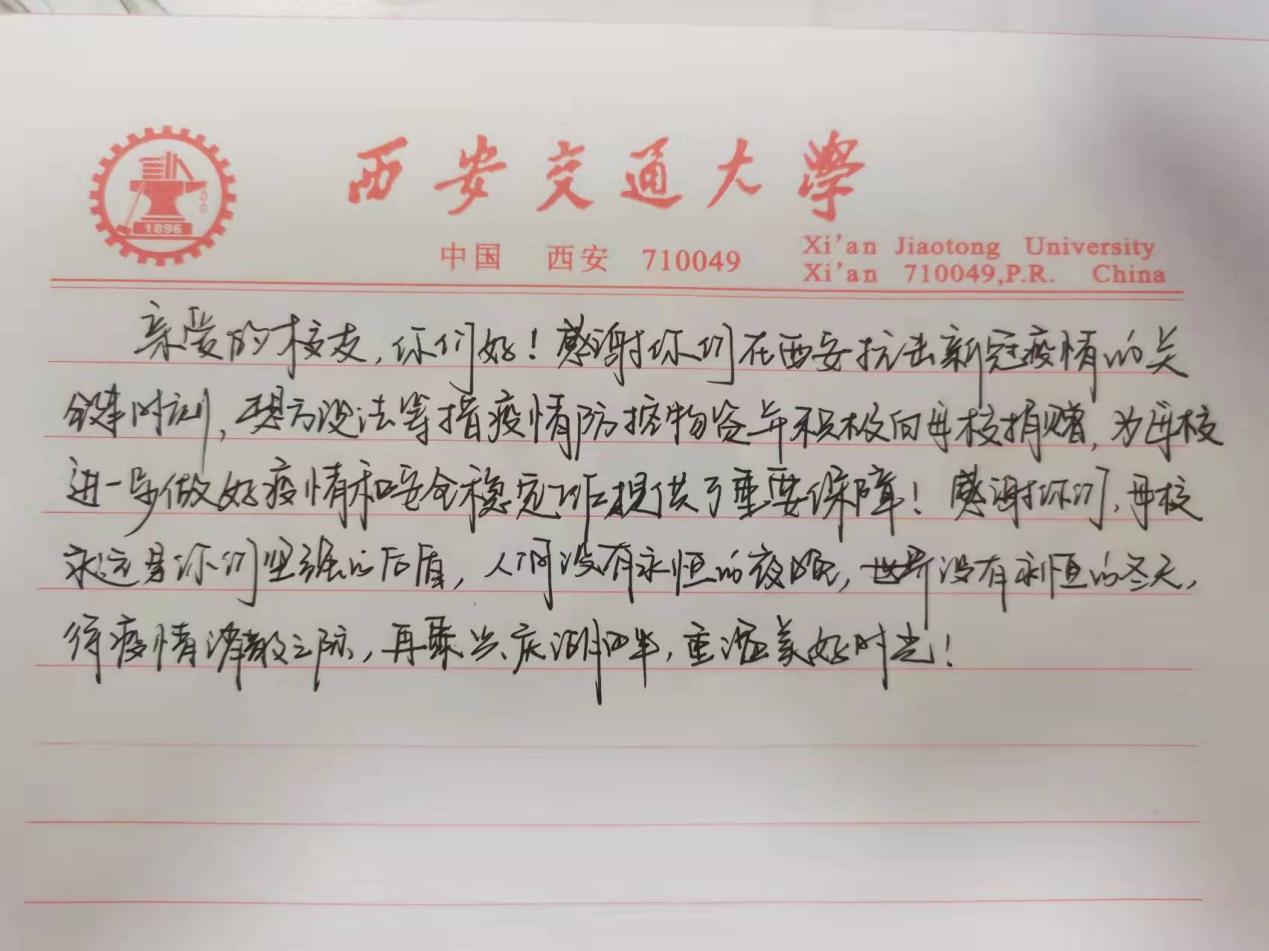 西安交通大學
中国 西安 710049
Xi'an Jiaotong University
Xi'an 710049,P.R. China
1896
亲爱的校友,你们好!感谢你们在西安抗击新冠疫情的关
键时刻,想方设法筹措疫情防控物资并积极向母校捐赠,为母校
进一步做好疫情和安全稳定工作提供了重要保障!感谢你们,母校
永远是你们坚强的后盾,人间没有永恒的夜晚,世界没有永恒的冬天,
待疫情消散之际,再聚兴庆湖畔,重温美好时光!